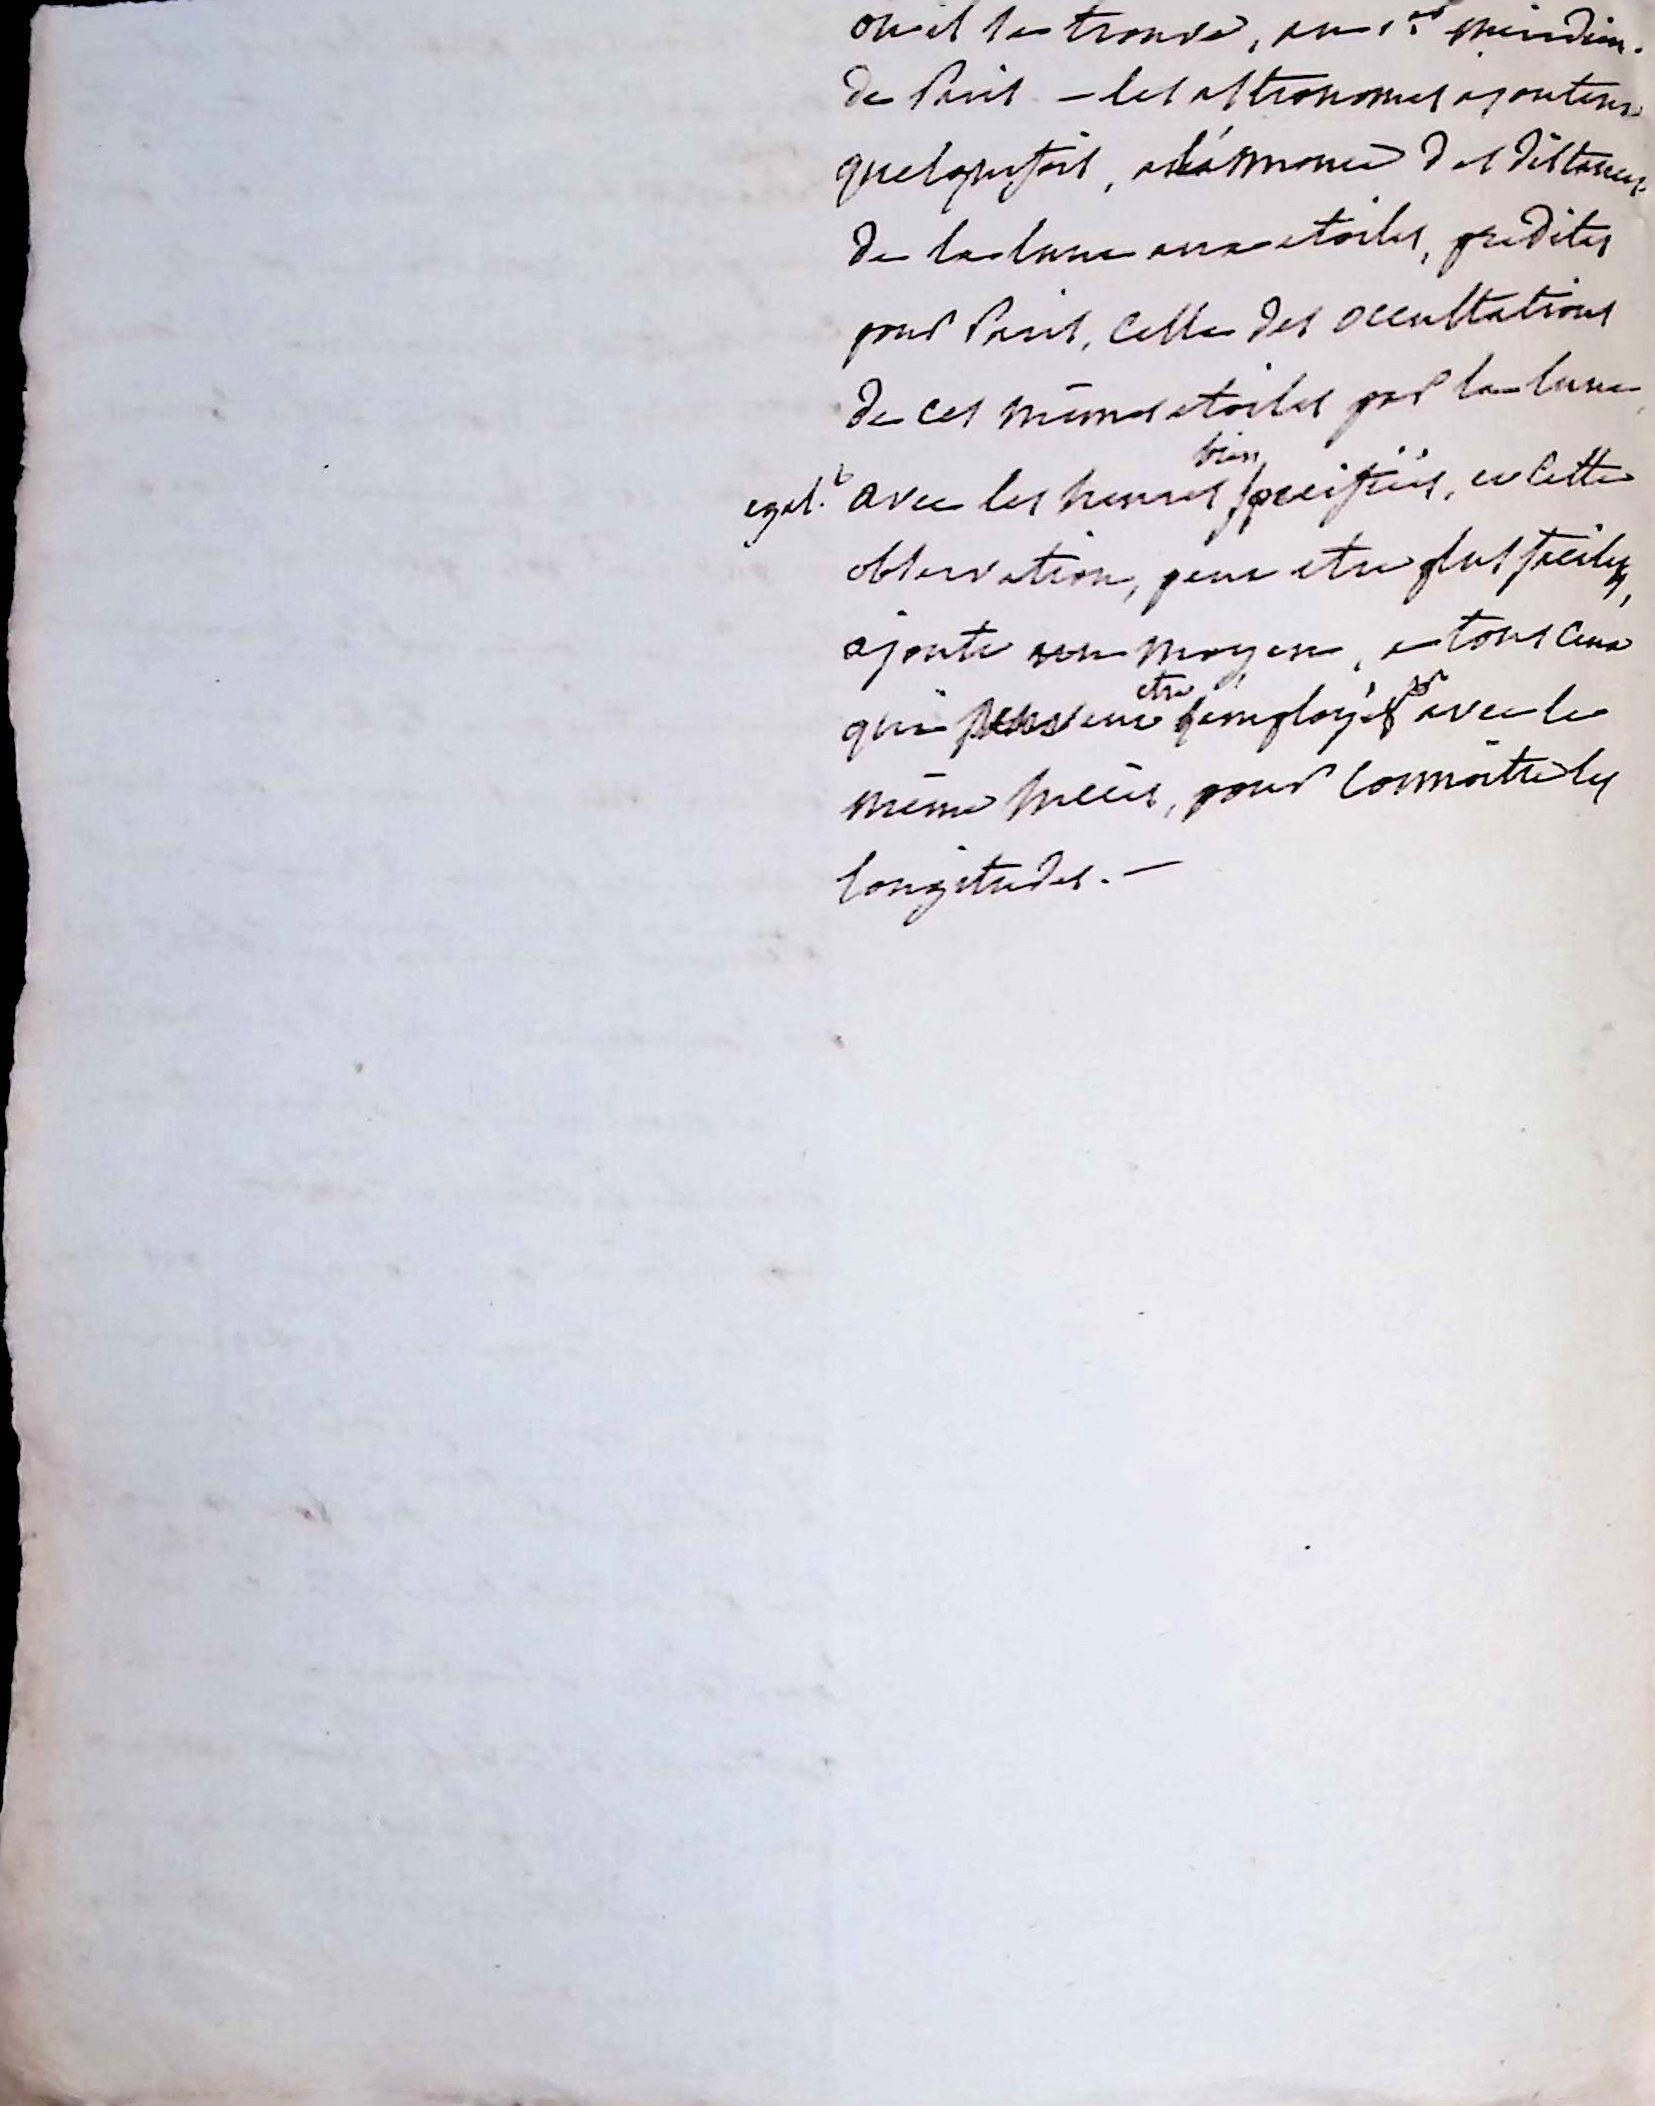 ou il se trouve, au 1er meridien.
de Paris - les astronomes ajoutent
quelquefois, a l'annonce des distances
de la lune aux etoiles, predites
pour Paris, celle des occultations
de ces mêmes etoiles par la lune
bien
egal.t avec les heures precisées, et cette
observation, peut etre plus facile,
ajoute un moyen, a tous ceux
etre
qui peuvent employés avec le
même succès, pour connoitre les
longitudes. -